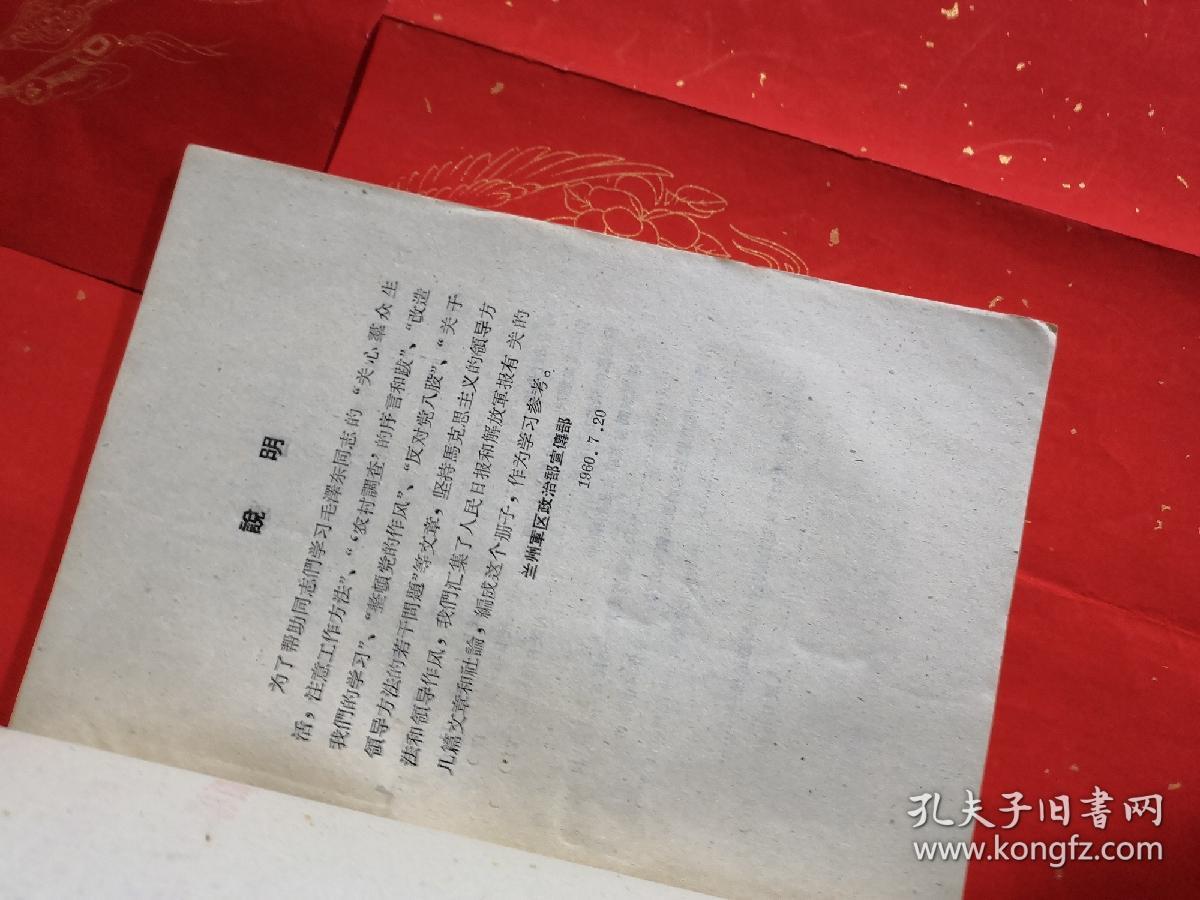 說明
为了帮助同志們学习毛澤东同志的“关心羣众生
活，注意工作方法”、“‘农村調查’的序言和跋”、“改造
我們的学习”、“整頓党的作风”、“反对党八股”、“关于
領导方法的若干問題”等文章，坚持馬克思主义的領导方
法和領导作风，我們汇集了人民日报和解放軍报有关的
几篇文章和社論，編成这个册子，作为学习参考。
兰州軍区政治部宣傳部
1960.7.20
孔夫子旧书网
www.kongfz.com